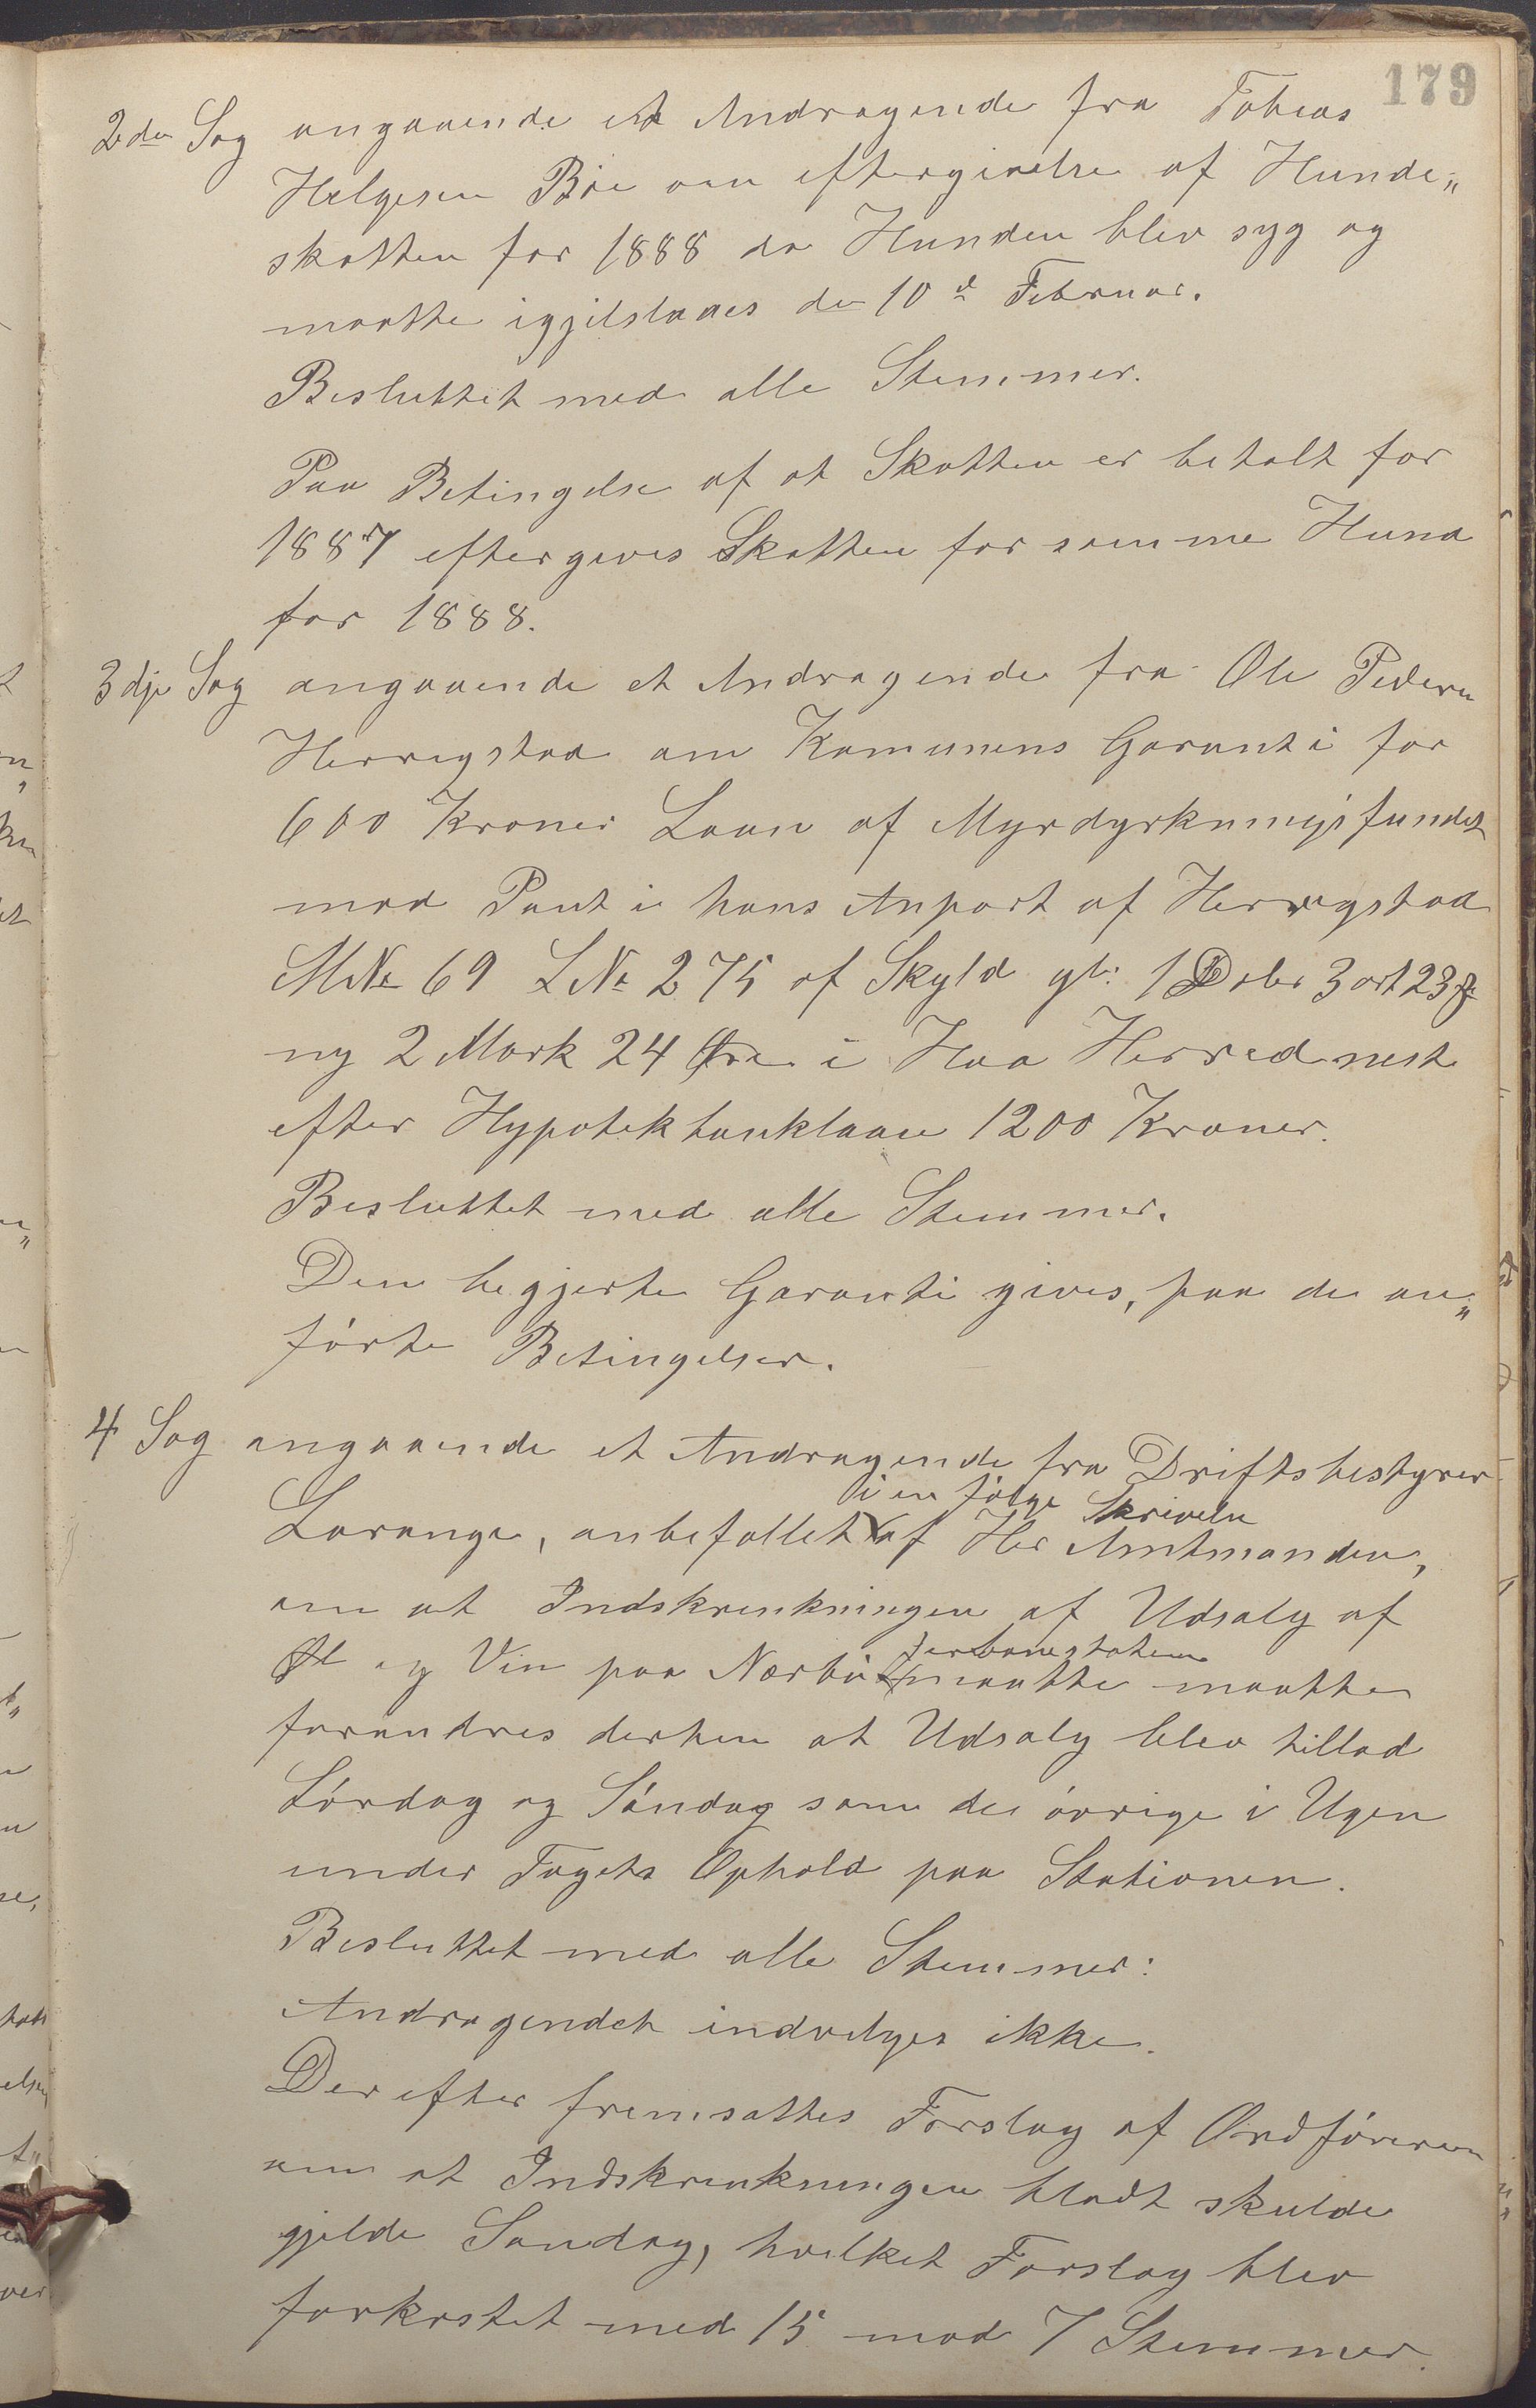 179
2den Sag angaaende et Andragende fra Tobias
Helgesen Böe om eftergivelse af Hunde„
skatten for 1888 da Hunden blev syg og
maatte igjelslaaes den 10d Februar.
Besluttet med alle Stemmer.
Paa Betingelse af at Skatten er betalt for
1887 eftergives Skatten for samme Hund
for 1888.
3dje Sag angaaende et Andragende fra Ole Pedersen
Herregstad om Komunens Garanti for
600 Kroner Laan af Myrdyrkningsfundet
mod Pant i hans Anpart af Herregstad
M№ 69 L№ 275 af Skyld gl: 1 Daler 3 ort 23 ß
ny 2 Mark 24 Øre i Haa Herred nest
efter Hypotekbanklaan 1200 Kroner.
Besluttet med alle Stemmer.
Den begjerte Garanti gives, paa de an„
förte Betingelser.
4 Sag angaaende et Andragende fra Driftsbestyrer
i en fölge Skrivelse
Lorange, anbefallet af Her Amtmanden,
om at Indskrenkningen af Udsalg af
Jernbanestation
Øl og Vin paa Nærbö maatte maatte
forandres derhen at Udsalg blev tillad
Lördag og Söndag som de övrige i Ugen
under Togets Ophold paa Stationen.
Besluttet med alle Stemmer:
Andragendet indvelges ikke.
Der efter fremsattes Forslag af Ordföreren
om at Indskrenkningen bladt skulde
gjelde Sondag, hvilket Forslag blev
forkastet med 15 mod 7 Stemmer.